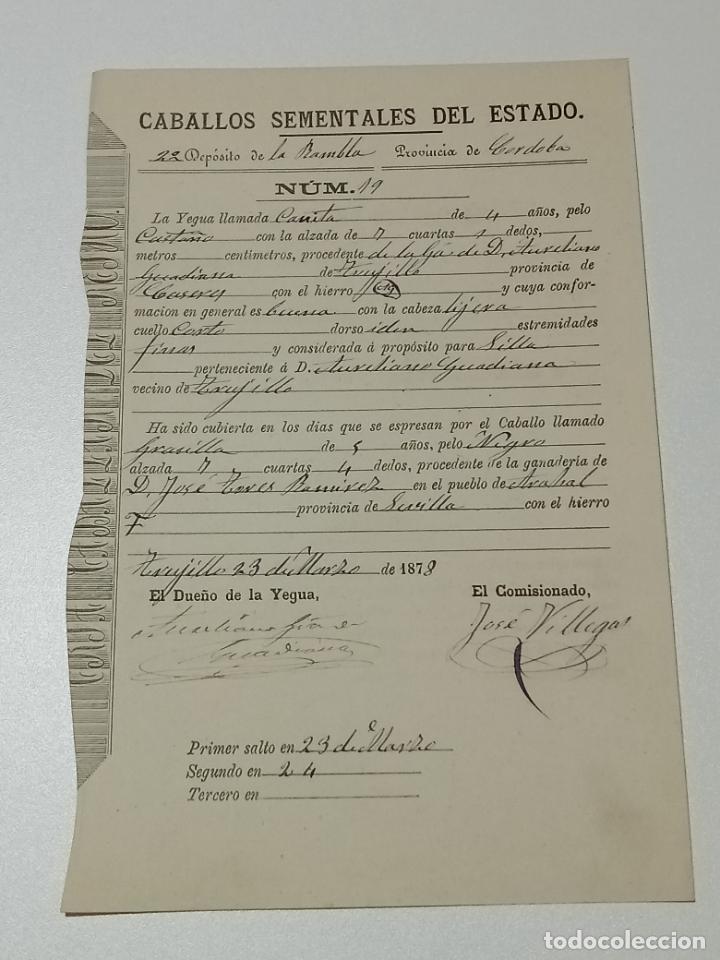 CABALLOS SEMENTALES DEL ESTADO.
22 Depósito de la Rambla Provincia de Cordoba
NÚM. 19
La Yegua llamada de 4 años, pelo
Castaño con la alzada de 7 cuartas dedos,
metros centímetros, procedente de la Gª de D. Aureliano
Guadiana de Trujillo provincia de
Caseres con el hierro y cuya confor-
macion en general es buena con la cabeza lijera
cuello Corto dorso iden estremidades
finas y considerada á propósito para Silla
perteneciente á D. Aureliano Guadiana
vecino de Trujillo
Ha sido cubierta en los dias que se espresan por el Caballo llamado
Grasilla de 5 años, pelo Nigro
alzada 7 cuartas 4 dedos, procedente de la ganadería de
D. José Torres Ramirez en el pueblo de Arahal
provincia de Sevilla con el hierro
F
Trujillo 23 de Marzo de 1878
El Dueño de la Yegua, El Comisionado,
Aureliano José Villegas
Guadiana
Primer salto en 23 de Marzo
Segundo en 24
Tercero en
todocoleccion